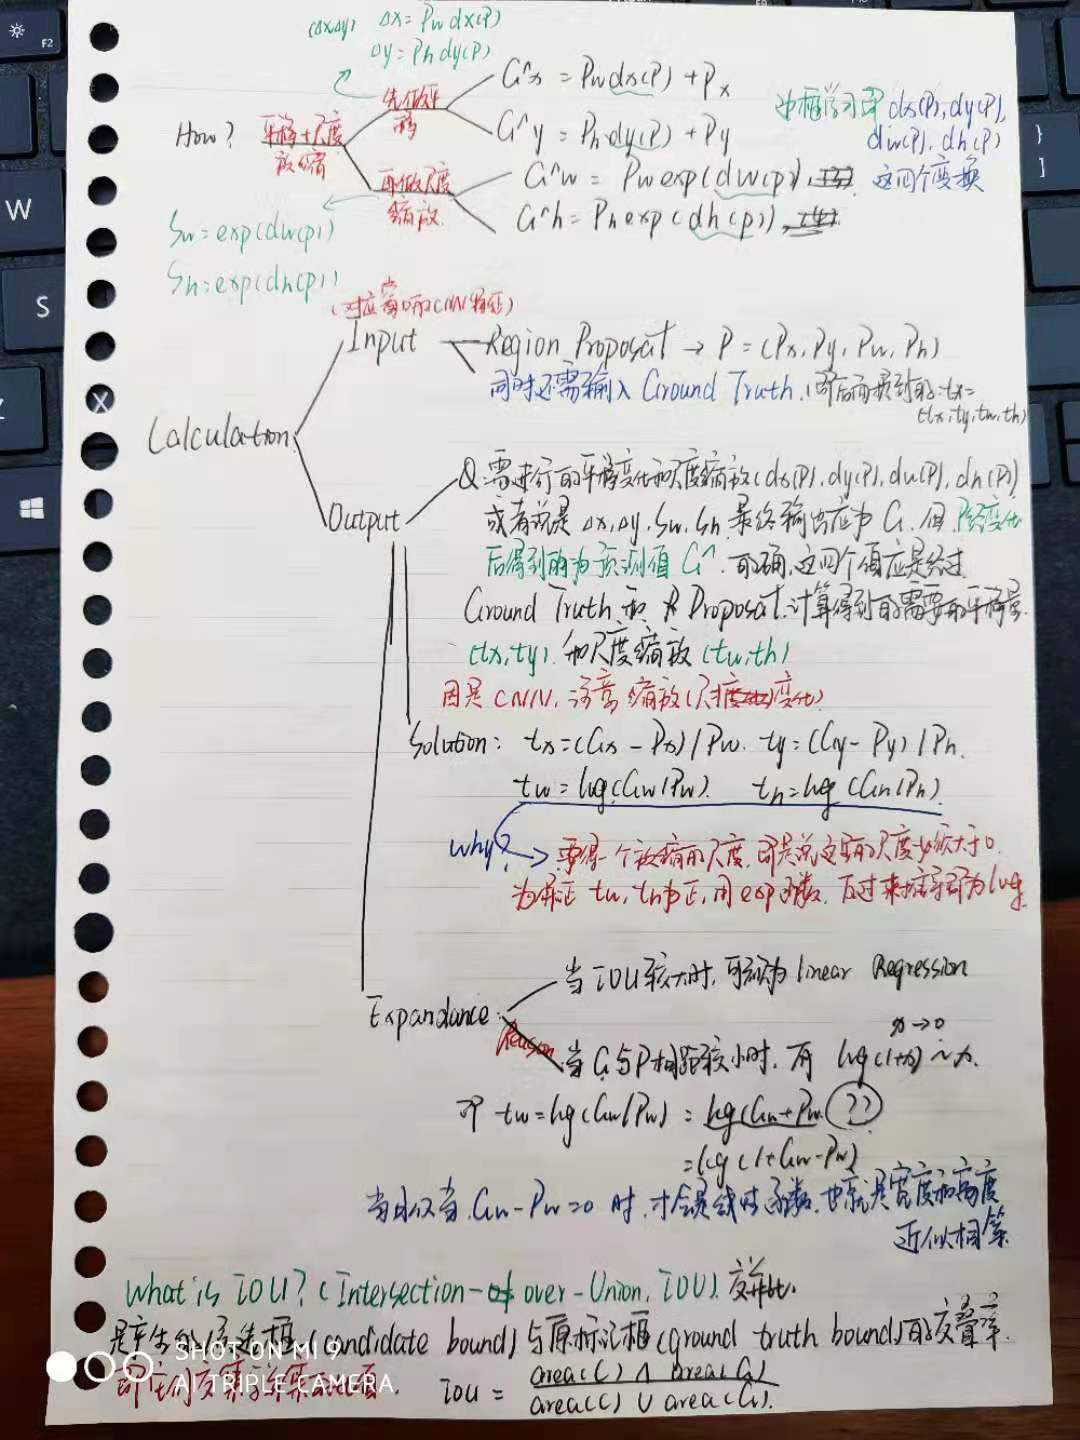 (Δx,Δy) Δx = Pw dx(P)
Δy = Ph dy(P)
G^x = Pw dx(P) + Px
先做平移
G^y = Ph dy(P) + Py
How? 平移+尺度放缩
边框学习即 dx(P), dy(P),
dw(P), dh(P)
这四个变换
G^w = Pw exp(dw(P)),
再做尺度缩放
G^h = Ph exp(dh(P)),
Sw = exp(dw(P))
Sh = exp(dh(P))
(对应窗口的CNN特征)
Input
Region Proposal → P = (Px, Py, Pw, Ph)
同时还需输入 Ground Truth, 即后面提到的 tx =
(tx, ty, tw, th)
Calculation
Output
需进行的平移变化和尺度缩放 (dx(P), dy(P), dw(P), dh(P))
或者说是 Δx, Δy, Sw, Sh 最终输出应为 G, 但 P经变化
后得到的为预测值 G^. 明确, 这四个值应是经过
Ground Truth 和 Proposal 计算得到的需要的平移量
(tx, ty) 和尺度缩放 (tw, th)
因是 CNN, 注意缩放(尺度变化)
Solution: tx = (Gx - Px) / Pw. ty = (Gy - Py) / Ph.
tw = log(Gw/Pw). th = log(Gh/Ph).
Why?
要得一个放缩的尺度, 即是说这里的尺度必须大于0
为保证 tw, th为正, 用 exp 函数, 反过来推导即为 log.
当 IOU 较大时, 可视为 linear Regression
Expandance
Reason
x→0
当 G与P相距较小时, 有 log(1+x) ~ x.
即 tw = log(Gw/Pw) = log(Gw+Pw (??)
= log(1+Gw-Pw)
当且仅当 Gw-Pw=0 时, 才会是线性函数, 也就是宽度和高度
近似相等
What is IOU? (Intersection-of over-Union, IOU). 交并比.
是产生的候选框 (candidate bound) 与原标记框 (ground truth bound) 的交叠率.
即它们交集与并集的比值. IOU = area(C) ∩ area(G)
area(C) ∪ area(G).
SHOT ON MI 9
AI TRIPLE CAMERA
F2
W
S
X
Z
}
]